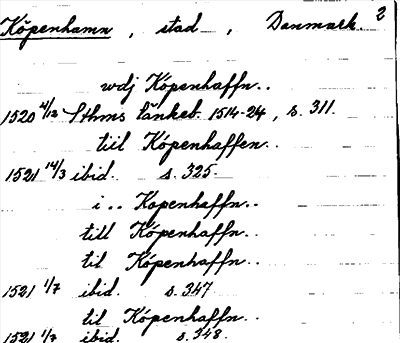 Köpenhamn, stad, Danmark. 2
wdj Köpenhaffn..
1520 4/12 Sthms tänkeb. 1514-24, s. 311.
tiil Köpenhaffen..
1521 14/3 ibid. s. 325.
i .. Kopenhaffn..
till Köpenhaffn..
til Köpenhaffn..
1521 1/7 ibid. s. 347
til Köpenhaffn..
1521 1/7 ibid. s. 348.